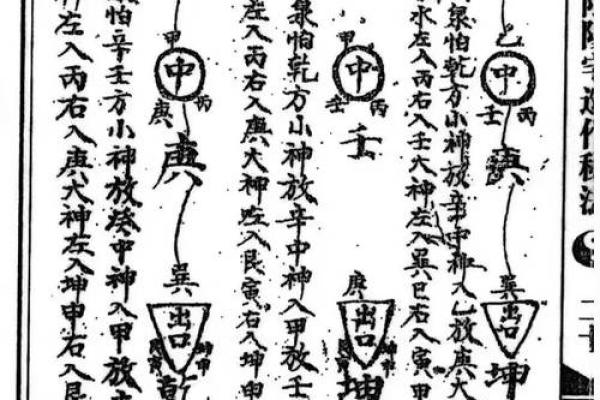 造作秘法
二十
乙
中
丙
壬
庚
巽
出口
坤
泉怕乾方小神放辛中神入乙放庚大
水左入丙右入壬大神左入巽巳右入寅甲
甲
中
丙
壬
壬
庚
出口
坤申
坤
泉怕乾方小神放辛中神入甲放壬
左入丙右入庚大神左入艮寅右入坤申
甲
中
丙
庚
庚
巽
出口
坤申
乾
怕辛壬方小神放癸中神入甲放
左入丙右入庚大神左入坤申右入艮